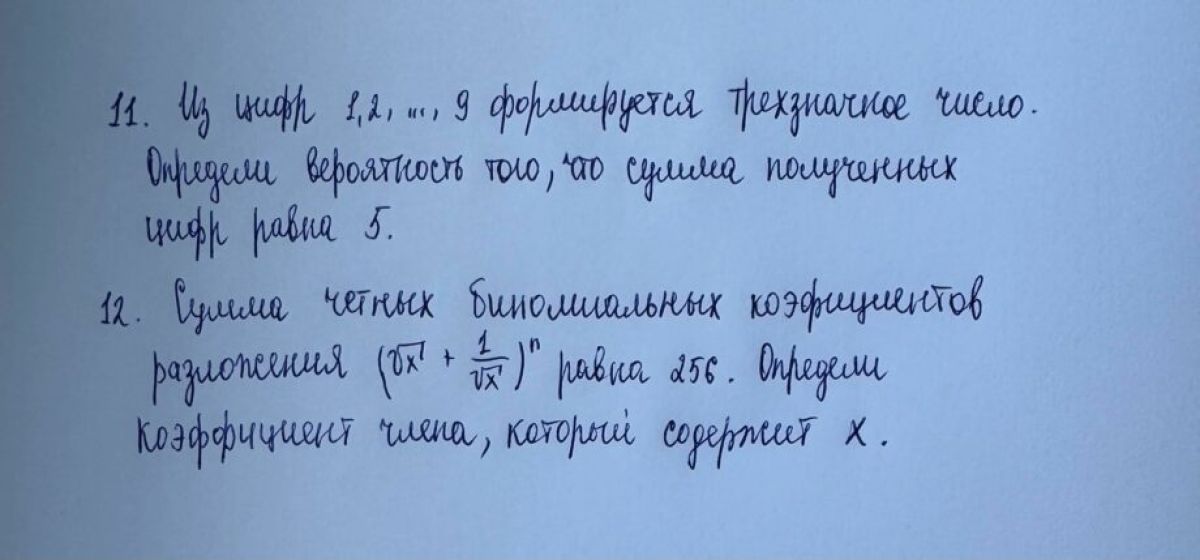 11. Из цифр 1,2, ..., 9 формируется трехзначное число.
Определи вероятность того, что сумма полученных
цифр равна 5.
12. Сумма четных биномиальных коэфициентов
разложения (√x + 1/√x)ⁿ равна 256. Определи
коэффициент члена, который содержит x.